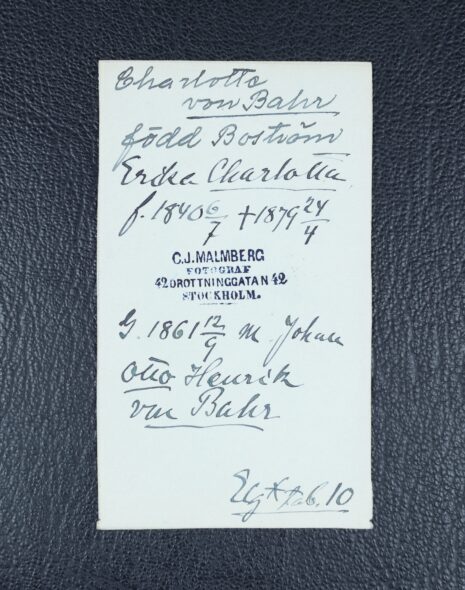 Charlotte
von Bahr
född Boström
Erika Charlotta
f. 1840 6/7 +1879 24/4
C.J. MALMBERG
FOTOGRAF
42 DROTTNINGGATAN 42
STOCKHOLM.
G. 1861 12/9 m. Johan
Otto Henrik
von Bahr
tab. 10